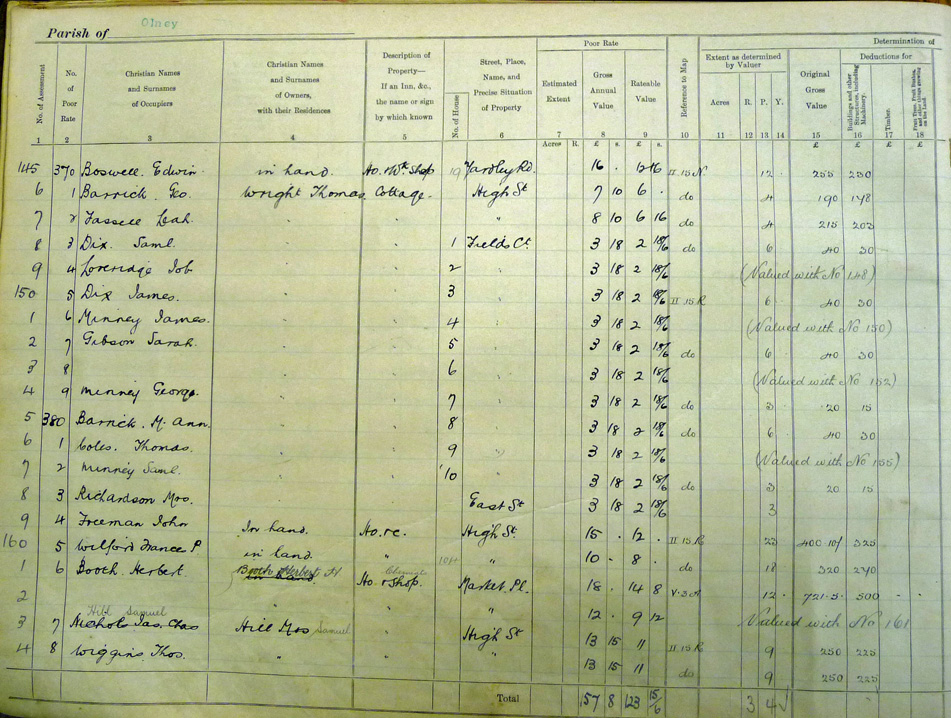 Olney
Parish of
Determination of
Poor Rate
Extent as determined by Valuer
Deductions for
No. of Assessment
No. of Poor Rate
Christian Names and Surnames of Occupiers
Christian Names and Surnames of Owners, with their Residences
Description of Property— If an Inn, &c., the name or sign by which known
No. of House
Street, Place, Name, and Precise Situation of Property
Estimated Extent
Gross Annual Value
Rateable Value
Reference to Map
Acres R. P. Y.
Original Gross Value
Buildings and other Structures, including Machinery.
Timber.
Fruit Trees, Fruit Bushes, and other things growing on the land.
1 2 3 4 5 6 7 8 9 10 11 12 13 14 15 16 17 18
Acres R. £ s. £ s. £ £ £ £
145 370 Boswell. Edwin in hand. Ho. & Wk Shop 19 Yardley Rd. 16 . 12 16 II 15 N 12 . 255 250
6 1 Barrick. Geo. Wright Thomas. Cottage. High St 7 10 6 . do 4 190 178
7 2 Fassell Leah " " " 8 10 6 16 4 215 203
8 3 Dix. Saml. " " 1 Fields Ct. 3 18 2 18/6 do 6 40 30
9 4 Loveridge Job " " 2 " 3 18 2 18/6 (Valued with No 148)
150 5 Dix James. " " 3 " 3 18 2 18/6 II 15 R 6 . 40 30
1 6 Minney James. " " 4 " 3 18 2 18/6 (Valued with No 150)
2 7 Gibson Sarah. " " 5 " 3 18 2 18/6 do 6 40 30
3 8 " " 6 " 3 18 2 18/6 (Valued with No 152)
4 9 Minney George. " " 7 " 3 18 2 18/6 do 3 20 15
5 380 Barrick. M. Ann. " " 8 " 3 18 2 18/6 do 6 40 30
6 1 Coles. Thomas. " " 9 " 3 18 2 18/6 (Valued with No 155)
7 2 Minney Saml. " " 10 " 3 18 2 18/6 do 3 20 15
8 3 Richardson Mrs. " " East St 3 18 2 18/6 3
9 4 Freeman John In hand. Ho. &c. High St. 15 . 12 . II 15 R 23 400 10/ 325
160 5 Wilford France P in hand. " " 10 - 8 . do 18 320 270
1 6 Booch Herbert. Booth Herbert Ho. & Shop. Market Pl. 18 . 14 8 V.3.A 12 . 721.5. 500 - -
2 " " " 12 . 9 12 Valued with No 161
Hill Samuel
3 7 Nichols Jas. Chas Hill Mrs Samuel " High St 13 15 11 II 15 R 9 250 225
4 8 Wiggins Thos. " " " 13 15 11 do 9 250 225
Total 157 8 123 15/6 3 4